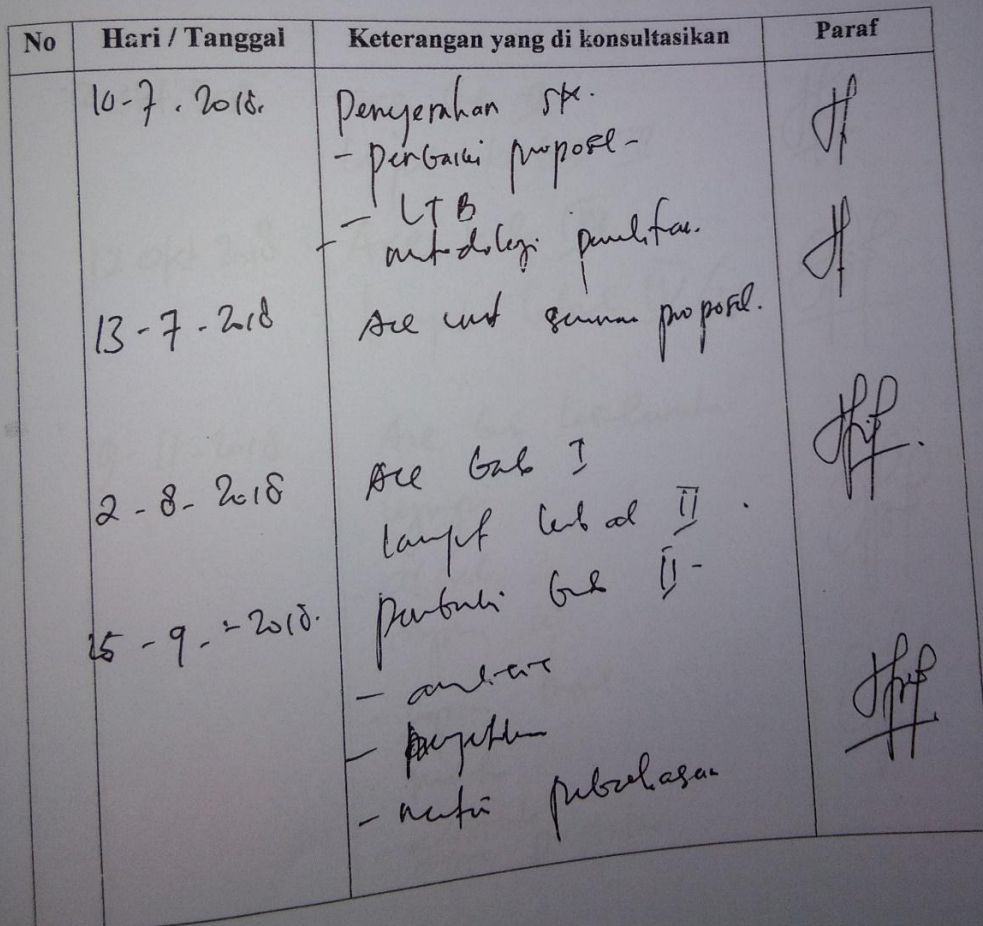 No Hari / Tanggal Keterangan yang di konsultasikan Paraf
10-7. 2018. Penyerahan
- perbaiki proposl -
- LTB
- metodologi penelitian.
13-7-2018 Acc unt seminar proposl.
2-8-2018 Acc bab I
lanjut ke bab II.
25-9-2018. perbaiki bab II-
- analisis
-
- pembahasan